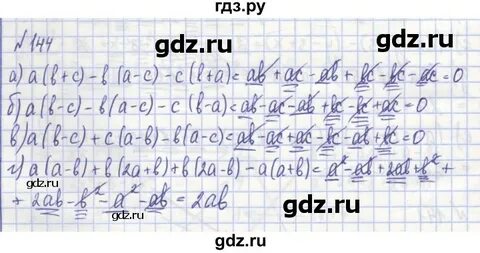 гдз.ру
№ 144
gdz.ru gdz.ru
а) a(b+c)-b(a-c)-c(b+a)=ab+ac-ab+bc-bc-ac=0
б) a(b-c)-b(a-c)-c(b-a)=ab-ac-ab+bc-bc+ac=0
в) a(b-c)+c(a-b)-b(a-c)=ab-ac+ac-bc-ab+bc=0
г) a(a-b)+b(2a+b)+b(2a-b)-a(a+b)=a²-ab+2ab+b²+
gdz.ru
+2ab-b²-a²-ab=2ab
gdz.ru
gdz.ru